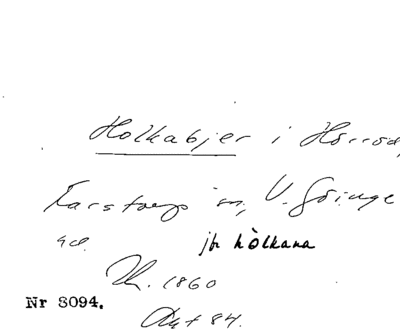 Holkabjer i Hörröd,
Farstorps sn, V. Göinge
jfr hòlkana
1860
Nr 3094.
84.